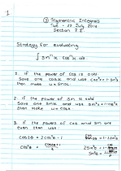 1.
② Trigonometric Integrals
Tue - 22 July 2014
Section 7.2
Strategy for evaluating
∫ sin^m x cos^n x dx
1. if the power of cos is odd
Save one cosx and use cos²x = 1-sin²x
then make u = sinx.
2. if the power of sin is odd
Save one sinx and use sin²x = 1-cos²x
then make u = cosx
3. if the power of both sin and cos are
even then use
cos2x = 2cos²x - 1
cos²x =